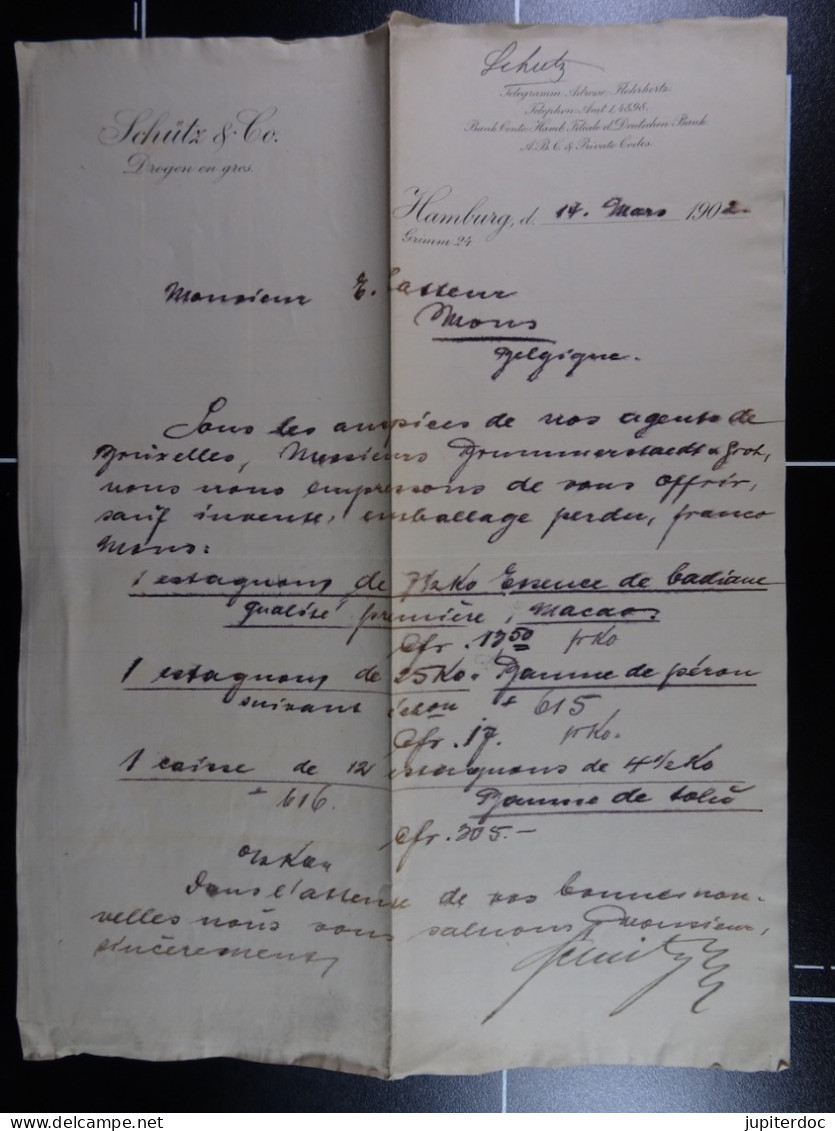 Schutz
Schütz & Co.
Drogen en gros.
Telegramm-Adresse: Flohrhertz
Telephon: Amt I, 4898.
Bank Conto: Hamb. Filiale d. Deutschen Bank
A.B.C. & Private Codes.
Hamburg, d. 14. Mars 1902.
Grimm 24
Monsieur E. Casteur
Mons
Belgique.
Sous les auspices de nos agents de
Bruxelles, Messieurs Brummerstaedt & Grot,
nous nous empressons de vous offrir,
sauf invente, emballage perdu, franco
Mons:
1 estagnons de 7½ Ko Essence de badiane
qualité première, Macao.
Cfr. 13 50 pr Ko
1 estagnons de 25 Ko. Baume de pérou
suivant éch on + 615
Cfr. 17. pr Ko.
1 caisse de 12 estagnons de 4½ Ko
+ 616. Baume de tolu
Cfr. 305.-
Dans l'attente de vos bonnes nou-
velles nous vous saluons, Monsieur,
sincèrement,
Schütz
jupiterdoc